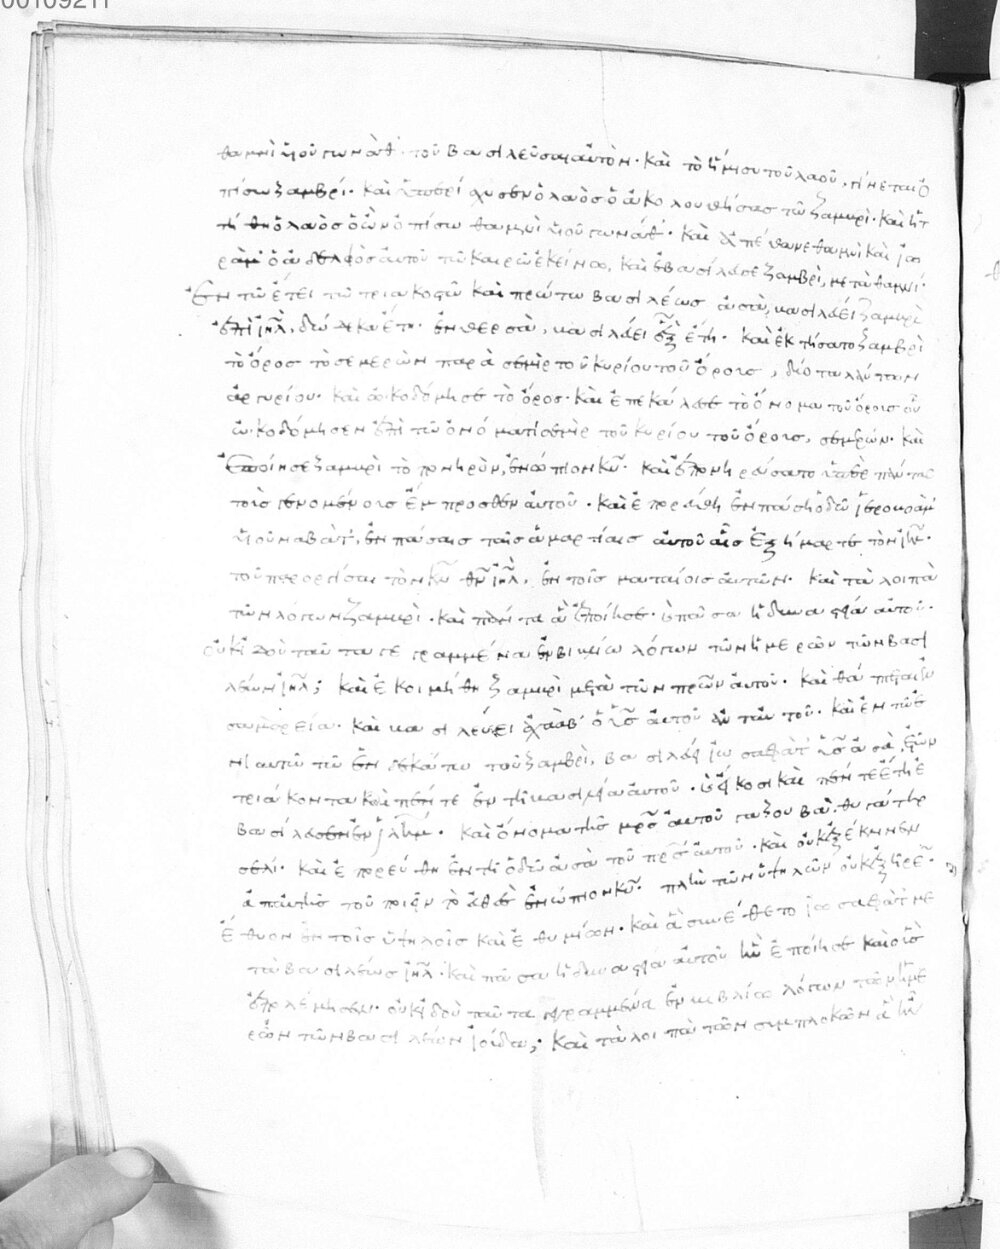 00109211
θαμνὶ υἱοῦ γωνάθ· τοῦ βασιλεῦσαι αὐτὸν· καὶ τὸ ἥμισυ τοῦ λαοῦ, γίνεται ὀ
πίσω ζαμβρί· καὶ ὁ λαὸς ὁ ἀκολουθήσας τῶ ζαμυρί· καὶ ἡτ
τήθη ὁ λαὸς ὁ ὢν ὀπίσω θαμνὶ υἱοῦ γωνάθ· καὶ ἀπέθανε θαμνὶ καὶ ἰω
ρὰμ ὁ ἀδελφὸς αὐτοῦ τῶ καιρῶ ἐκείνω, καὶ ἐβασίλευσε ζαμβρὶ, μετὰ θαμνί·
Ἐν τῶ ἔτει τῶ τριακοστῶ καὶ πρώτω βασιλέως ἀσὰ, βασιλεύει ζαμυρὶ
ἐπὶ ἰηλ, δώδεκα ἔτη· ἐν θερσὰ, βασιλεύει ἓξ ἔτη· καὶ ἐκτήσατο ζαμβρὶ
τὸ ὄρος τὸ σεμερὼν παρὰ σεμὴρ τοῦ κυρίου τοῦ ὄρους, δύο ταλάντων
ἀργυρίου· καὶ ὠκοδόμησε τὸ ὄρος· καὶ ἐπεκάλεσε τὸ ὄνομα τοῦ ὄρους οὗ
ὠκοδόμησεν ἐπὶ τῶ ὀνόματι σεμὴρ τοῦ κυρίου τοῦ ὄρους, σεμρών· καὶ
Ἐποίησε ζαμυρὶ τὸ πονηρὸν, ἐνώπιον κυ· καὶ ἐπονηρεύσατο ὑπὲρ πάντας
τοὺς γενομένους ἔμπροσθεν αὐτοῦ· καὶ ἐπορεύθη ἐν πάση ὁδῶ ἱεροβοὰμ
υἱοῦ ναβὰτ, ἐν πάσαις ταῖς ἁμαρτίαις αὐτοῦ αἷς ἐξήμαρτε τὸν ἰηλ·
τοῦ παροργίσαι τὸν κν θν ἰηλ, ἐν τοῖς ματαίοις αὐτῶν· καὶ τὰ λοιπὰ
τῶν λόγων ζαμυρὶ· καὶ πάντα ἃ ἐποίησε· καὶ πᾶσα ἡ δυναστεία αὐτοῦ·
οὐκ ἰδοὺ ταῦτα γεγραμμένα ἐν βιβλίω λόγων τῶν ἡμερῶν τῶν βασι
λέων ἰηλ; καὶ ἐκοιμήθη ζαμυρὶ μετὰ τῶν πρων αὐτοῦ· καὶ θάπτεται ἐν
σαμαρεία· καὶ βασιλεύει ἀχαὰβ ὁ υἱὸς αὐτοῦ ἀντ' αὐτοῦ· καὶ ἐν τῶ ἐ
νιαυτῶ τῶ ἑνδεκάτω τοῦ ζαμβρὶ, βασιλεύει ἰωσαφὰτ υἱὸς ἀσὰ, ἐτῶν
τριάκοντα καὶ πέντε ἐν τῆ βασιλεία αὐτοῦ· εἴκοσι καὶ πέντε ἔτη ἐ
βασίλευσεν ἐν ἰλημ· καὶ ὄνομα τῆς μρς αὐτοῦ γαζουβὰ, θυγάτηρ
σελί· καὶ ἐπορεύθη ἐν τῆ ὁδῶ ἀσὰ τοῦ πρς αὐτοῦ· καὶ οὐκ ἐξέκλινεν
ἀπ' αὐτῆς τοῦ ποιεῖν τὸ εὐθὲς ἐνώπιον κυ· πλὴν τῶν ὑψηλῶν οὐκ ἐξῆρεν·
ἔθυον ἐν τοῖς ὑψηλοῖς καὶ ἐθυμίων· καὶ ἃ συνέθετο ἰωσαφὰτ με
τὰ βασιλέως ἰηλ· καὶ πᾶσα ἡ δυναστεία αὐτοῦ ἣν ἐποίησε καὶ οὓς
ἐπολέμησεν· οὐκ ἰδοὺ ταῦτα γεγραμμένα ἐν βιβλίω λόγων τῶν ἡμε
ρῶν τῶν βασιλέων ἰούδα; καὶ τὰ λοιπὰ τῶν συμπλοκῶν ἃ